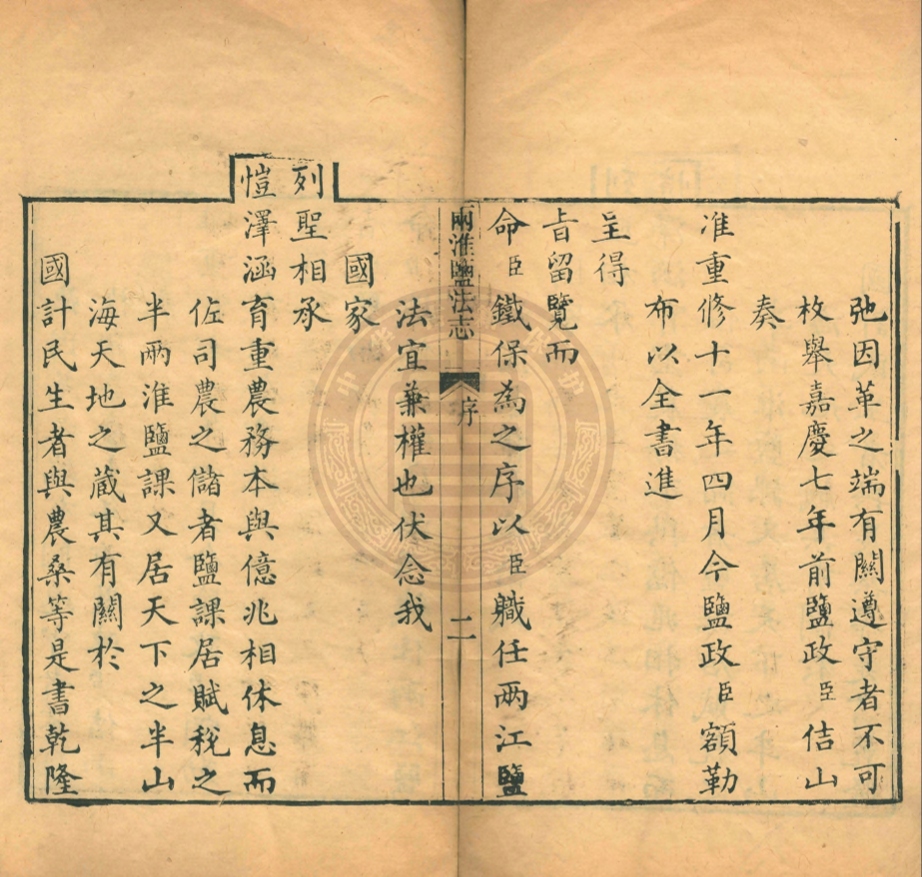 弛因革之端有關遵守者不可
枚舉嘉慶七年前鹽政臣佶山
奏
准重修十一年四月今鹽政臣額勒
布以全書進
呈得
旨留覽而
命臣鐵保為之序以臣職任兩江鹽
兩淮鹽法志 序 二
法宜兼權也伏念我
國家
列聖相承
愷澤涵育重農務本與億兆相休息而
佐司農之儲者鹽課居賦稅之
半兩淮鹽課又居天下之半山
海天地之藏其有關於
國計民生者與農桑等是書乾隆